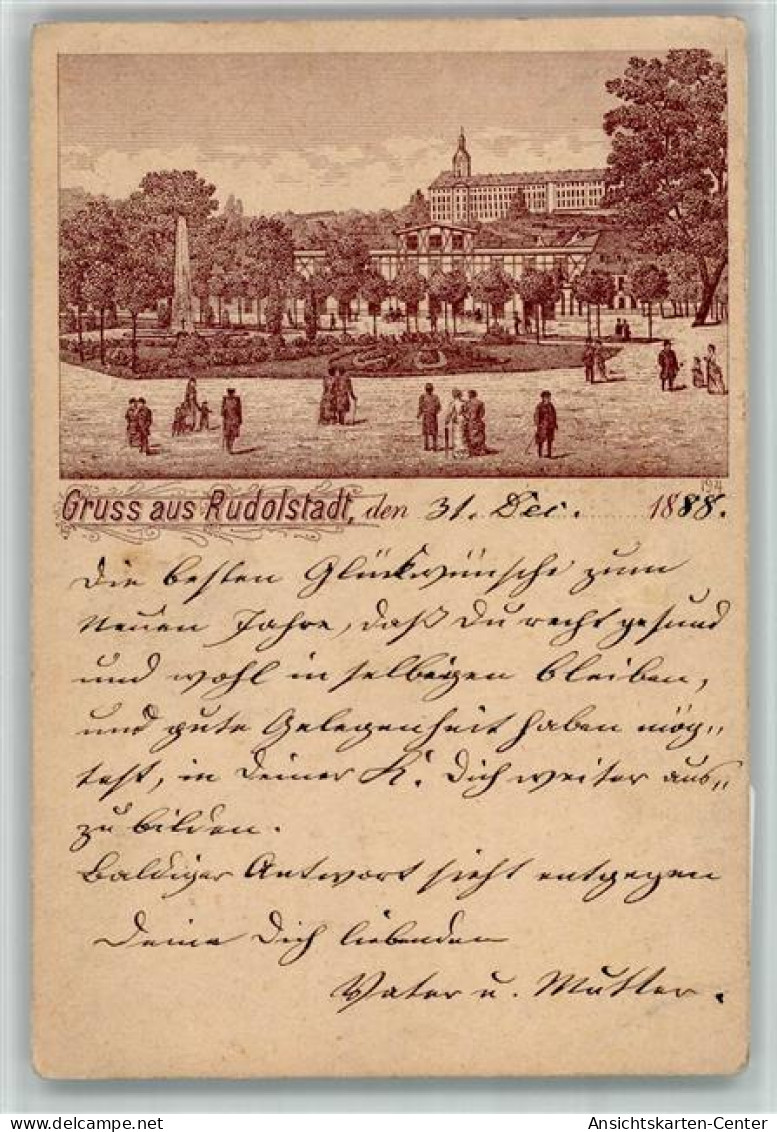 194
Gruss aus Rudolstadt, den 31. Dec. 1888.
Die besten Glückwünsche zum
Neuen Jahre, daß Du recht gesund
und wohl in selbigen bleiben,
und gute Gelegenheit haben mög„
test, in Deiner K. Dich weiter aus„
zu bilden.
Baldiger Antwort sieht entgegen
Deine Dich liebenden
Vater u. Mutter.
delcampe.net
Ansichtskarten-Center